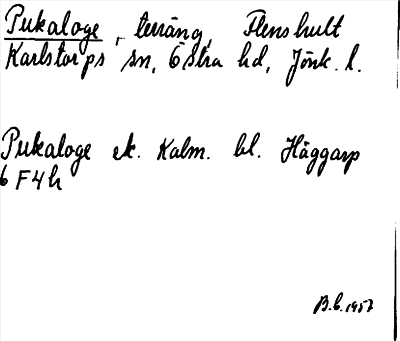 Pukaloge, terräng, Flenshult
Karlstorps sn, Östra hd, Jönk. l.
Pukaloge ek. Kalm. bl. Häggarp
6 F 4 h
B.C. 1957